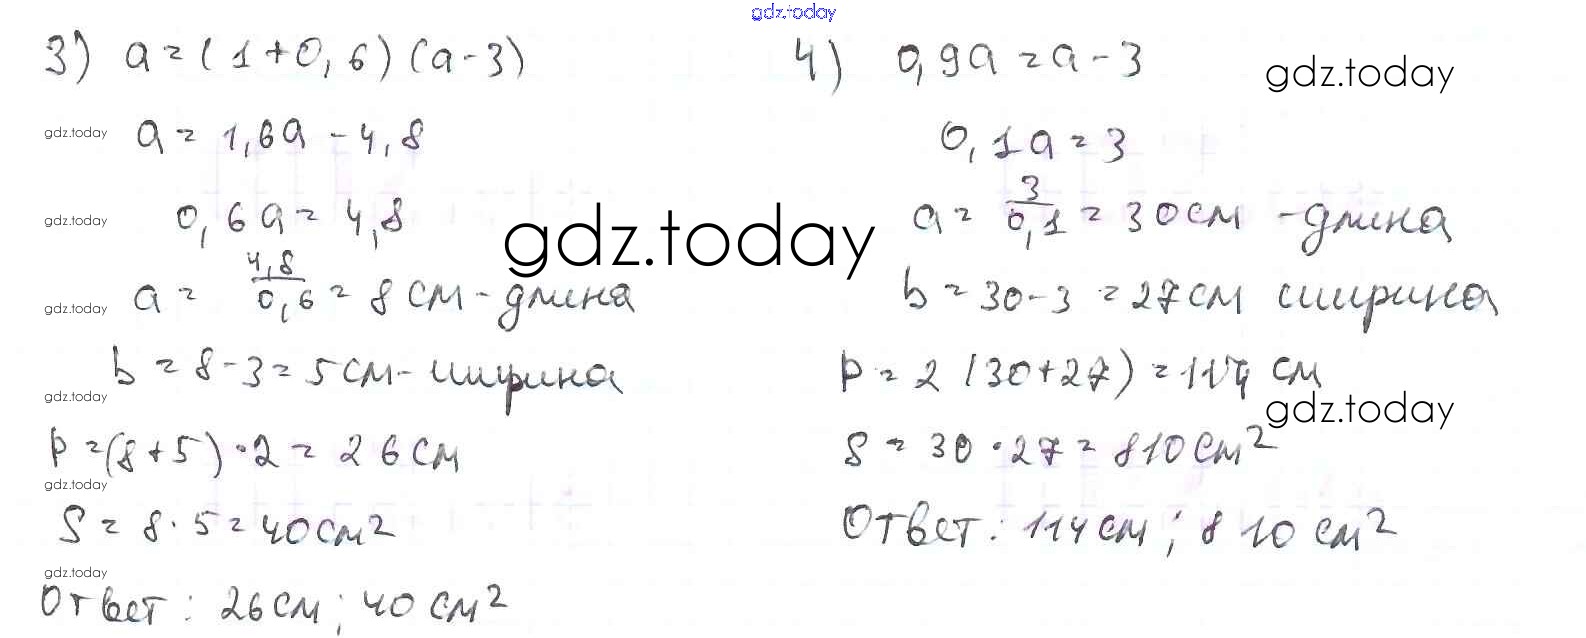 gdz.today
3) a = (1+0,6)(a-3)
a = 1,6a - 4,8
0,6a = 4,8
a = 4,8/0,6 = 8 см - длина
b = 8-3 = 5 см - ширина
P = (8+5)·2 = 26 см
S = 8·5 = 40 см²
Ответ: 26 см; 40 см²
4) 0,9a = a - 3
0,1a = 3
a = 3/0,1 = 30 см - длина
b = 30-3 = 27 см ширина
P = 2(30+27) = 114 см
S = 30·27 = 810 см²
Ответ: 114 см; 810 см²
gdz.today
gdz.today
gdz.today
gdz.today
gdz.today
gdz.today
gdz.today
gdz.today
gdz.today